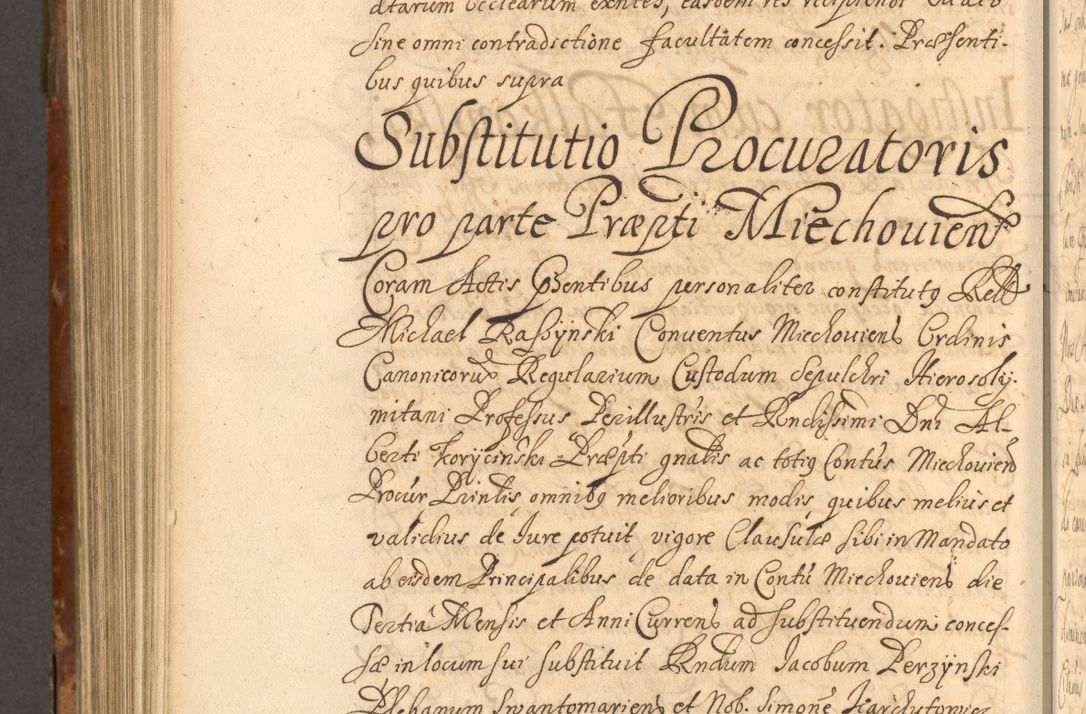 sine omni contradictione facultatem concessit. Præsenti-
bus quibus supra
Substitutio Procuratoris
pro parte Præpti Miechouien
Coram Actis Pñsentibus personaliter constitutq Rell
Michael Raßÿnski Conuentus Miechouiens Ordinis
Canonicorum Regularium Custodum Sepulchri Hierosoly-
mitani Professus Perillustris et Rndissimi Dni Al-
berti Koryciński Præpti gnalis ac totiq Contus Miechouien
Procur Prinlis omnibq melioribus modis quibus melius et
validius de Jure potuit vigore Clausulæ sibi in Mandato
ab eisdem Principalibus de data in Contu Miechouiens die
Tertia Mensis et Anni Currens ad substituendum conces-
sæ in locum sui substituit Rndum Jacobum Perzÿnski
Plebanum Swantomariens et Nob. Simone